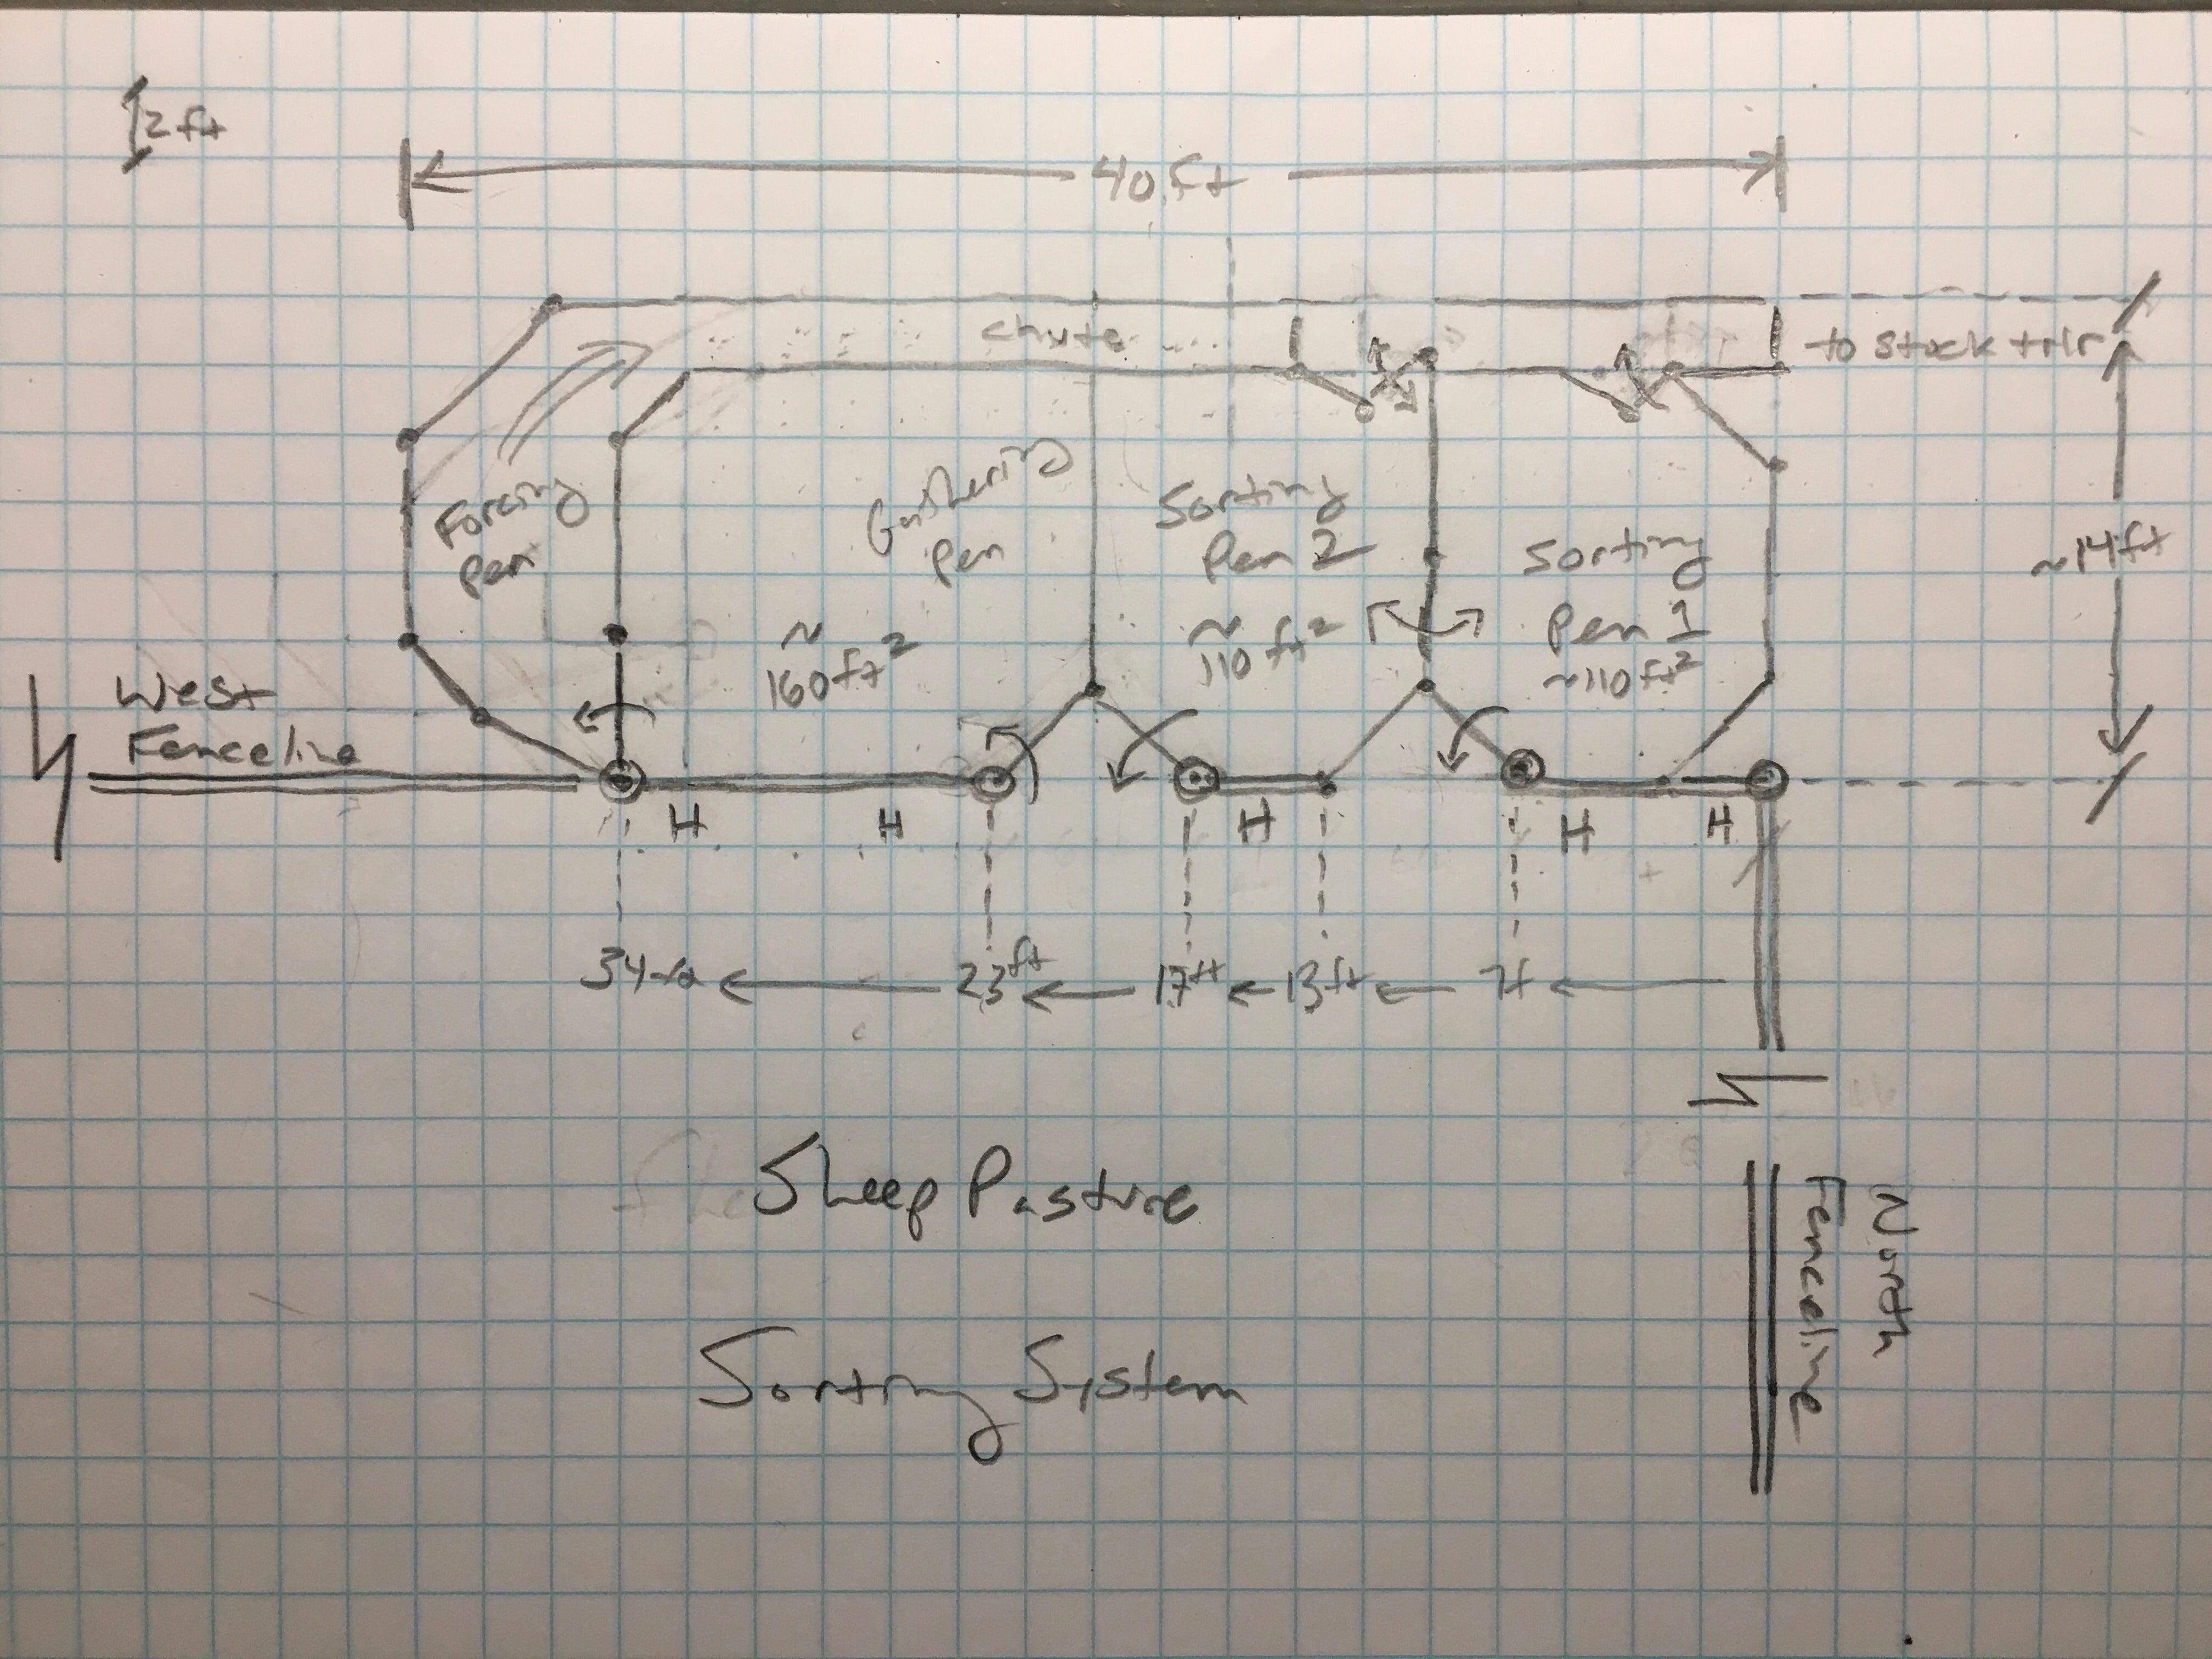 2 ft
40 ft
chute
to stock trlr
Forcing
Pen
Gathering
Pen
Sorting
Pen 2
Sorting
Pen 1
~14ft
~
160ft²
~
110 ft²
~110ft²
West
Fenceline
H H H H H
34ft 23ft 17ft 13ft 7f
Sheep Pasture
Sorting System
North
Fenceline